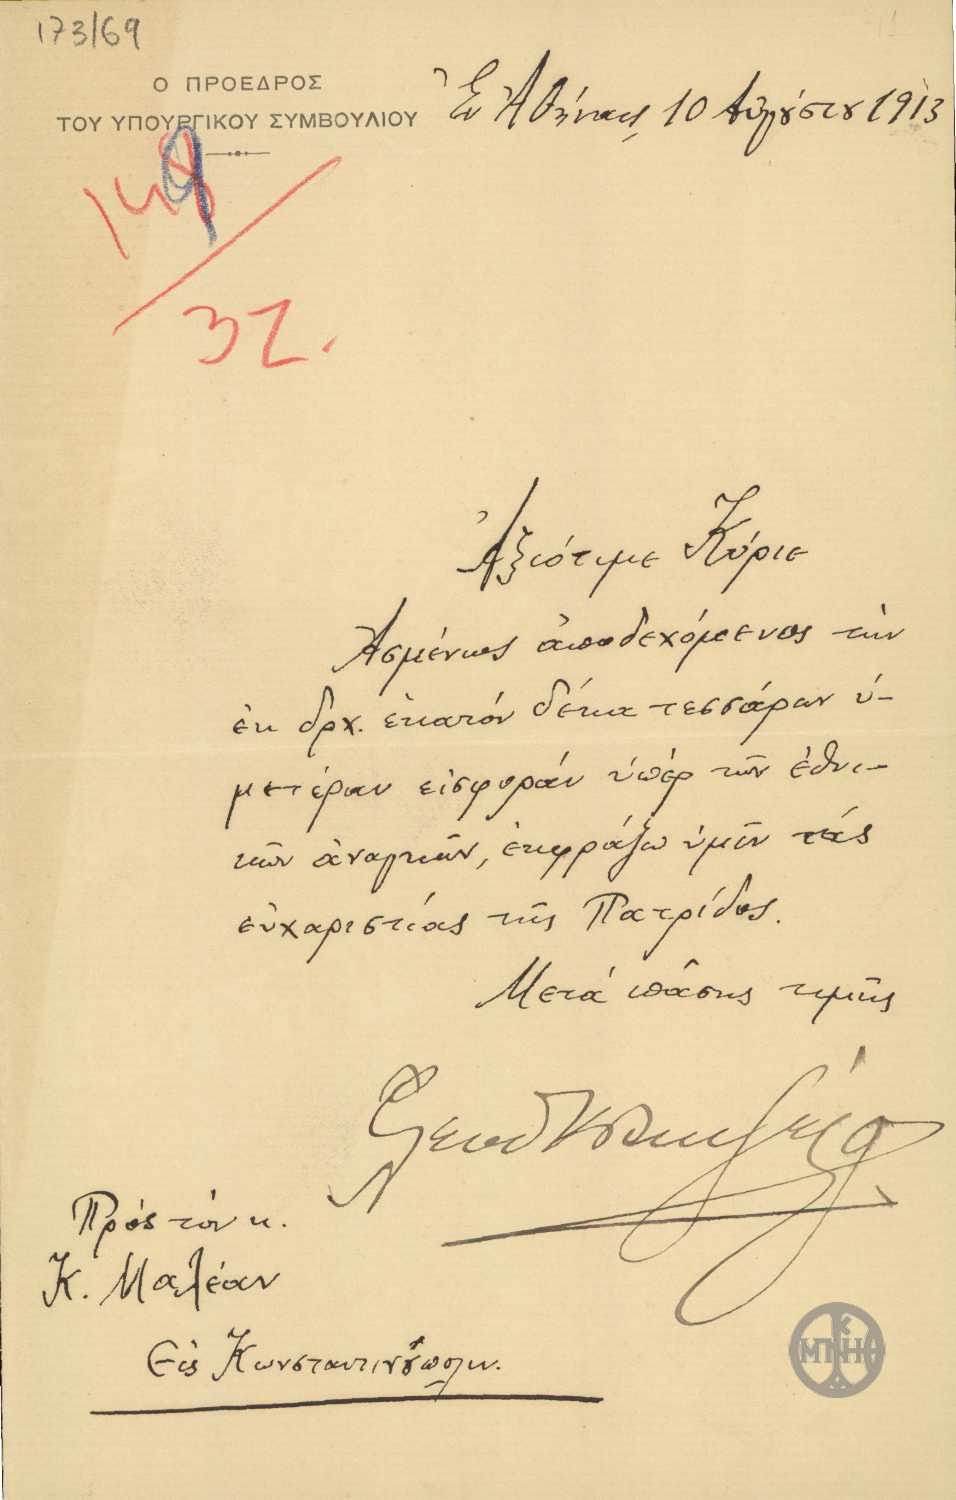 173/69
Ο ΠΡΟΕΔΡΟΣ
ΤΟΥ ΥΠΟΥΡΓΙΚΟΥ ΣΥΜΒΟΥΛΙΟΥ
Ἐν Ἀθήναις 10 Αὐγούστου 1913
149
32.
Ἀξιότιμε Κύριε
Ἀσμένως ἀποδεχόμενος τὴν
ἐκ δρχ. ἑκατὸν δέκα τεσσάρων ὑ-
μετέραν εἰσφορὰν ὑπὲρ τῶν ἐθνι-
κῶν ἀναγκῶν, ἐκφράζω ὑμῖν τὰς
εὐχαριστίας τῆς Πατρίδος.
Μετὰ πάσης τιμῆς
Πρὸς τὸν κ.
Κ.
Εἰς Κωνσταντινούπολιν.
ΜΠΝΗ